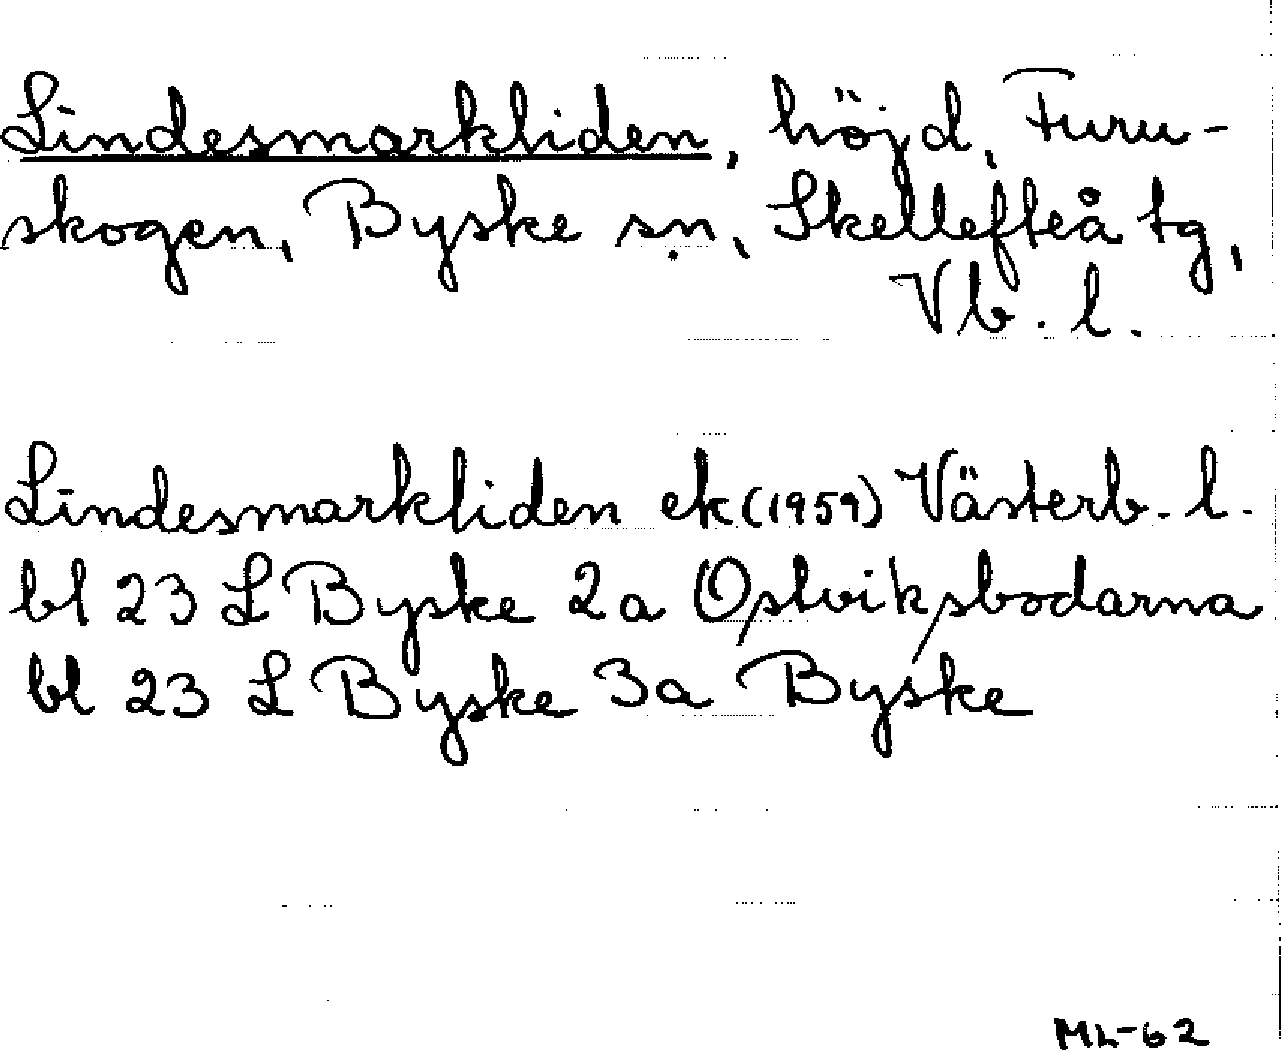 Lindesmarkliden, höjd, Furu-
skogen, Byske sn, Skellefteå tg,
Vb. l.
Lindesmarkliden ek (1959) Västerb. l.
bl 23 L Byske 2a Ostviksbodarna
bl 23 L Byske 3a Byske
ML-62